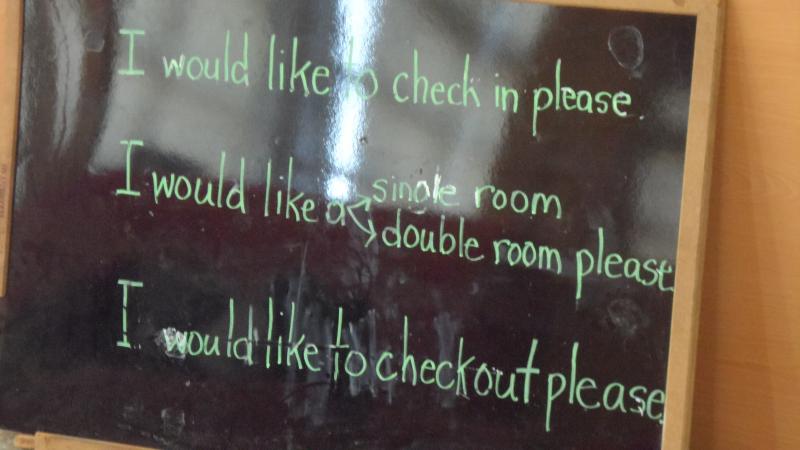 I would like to check in please.
I would like a single room
double room please.
I would like to checkout please.